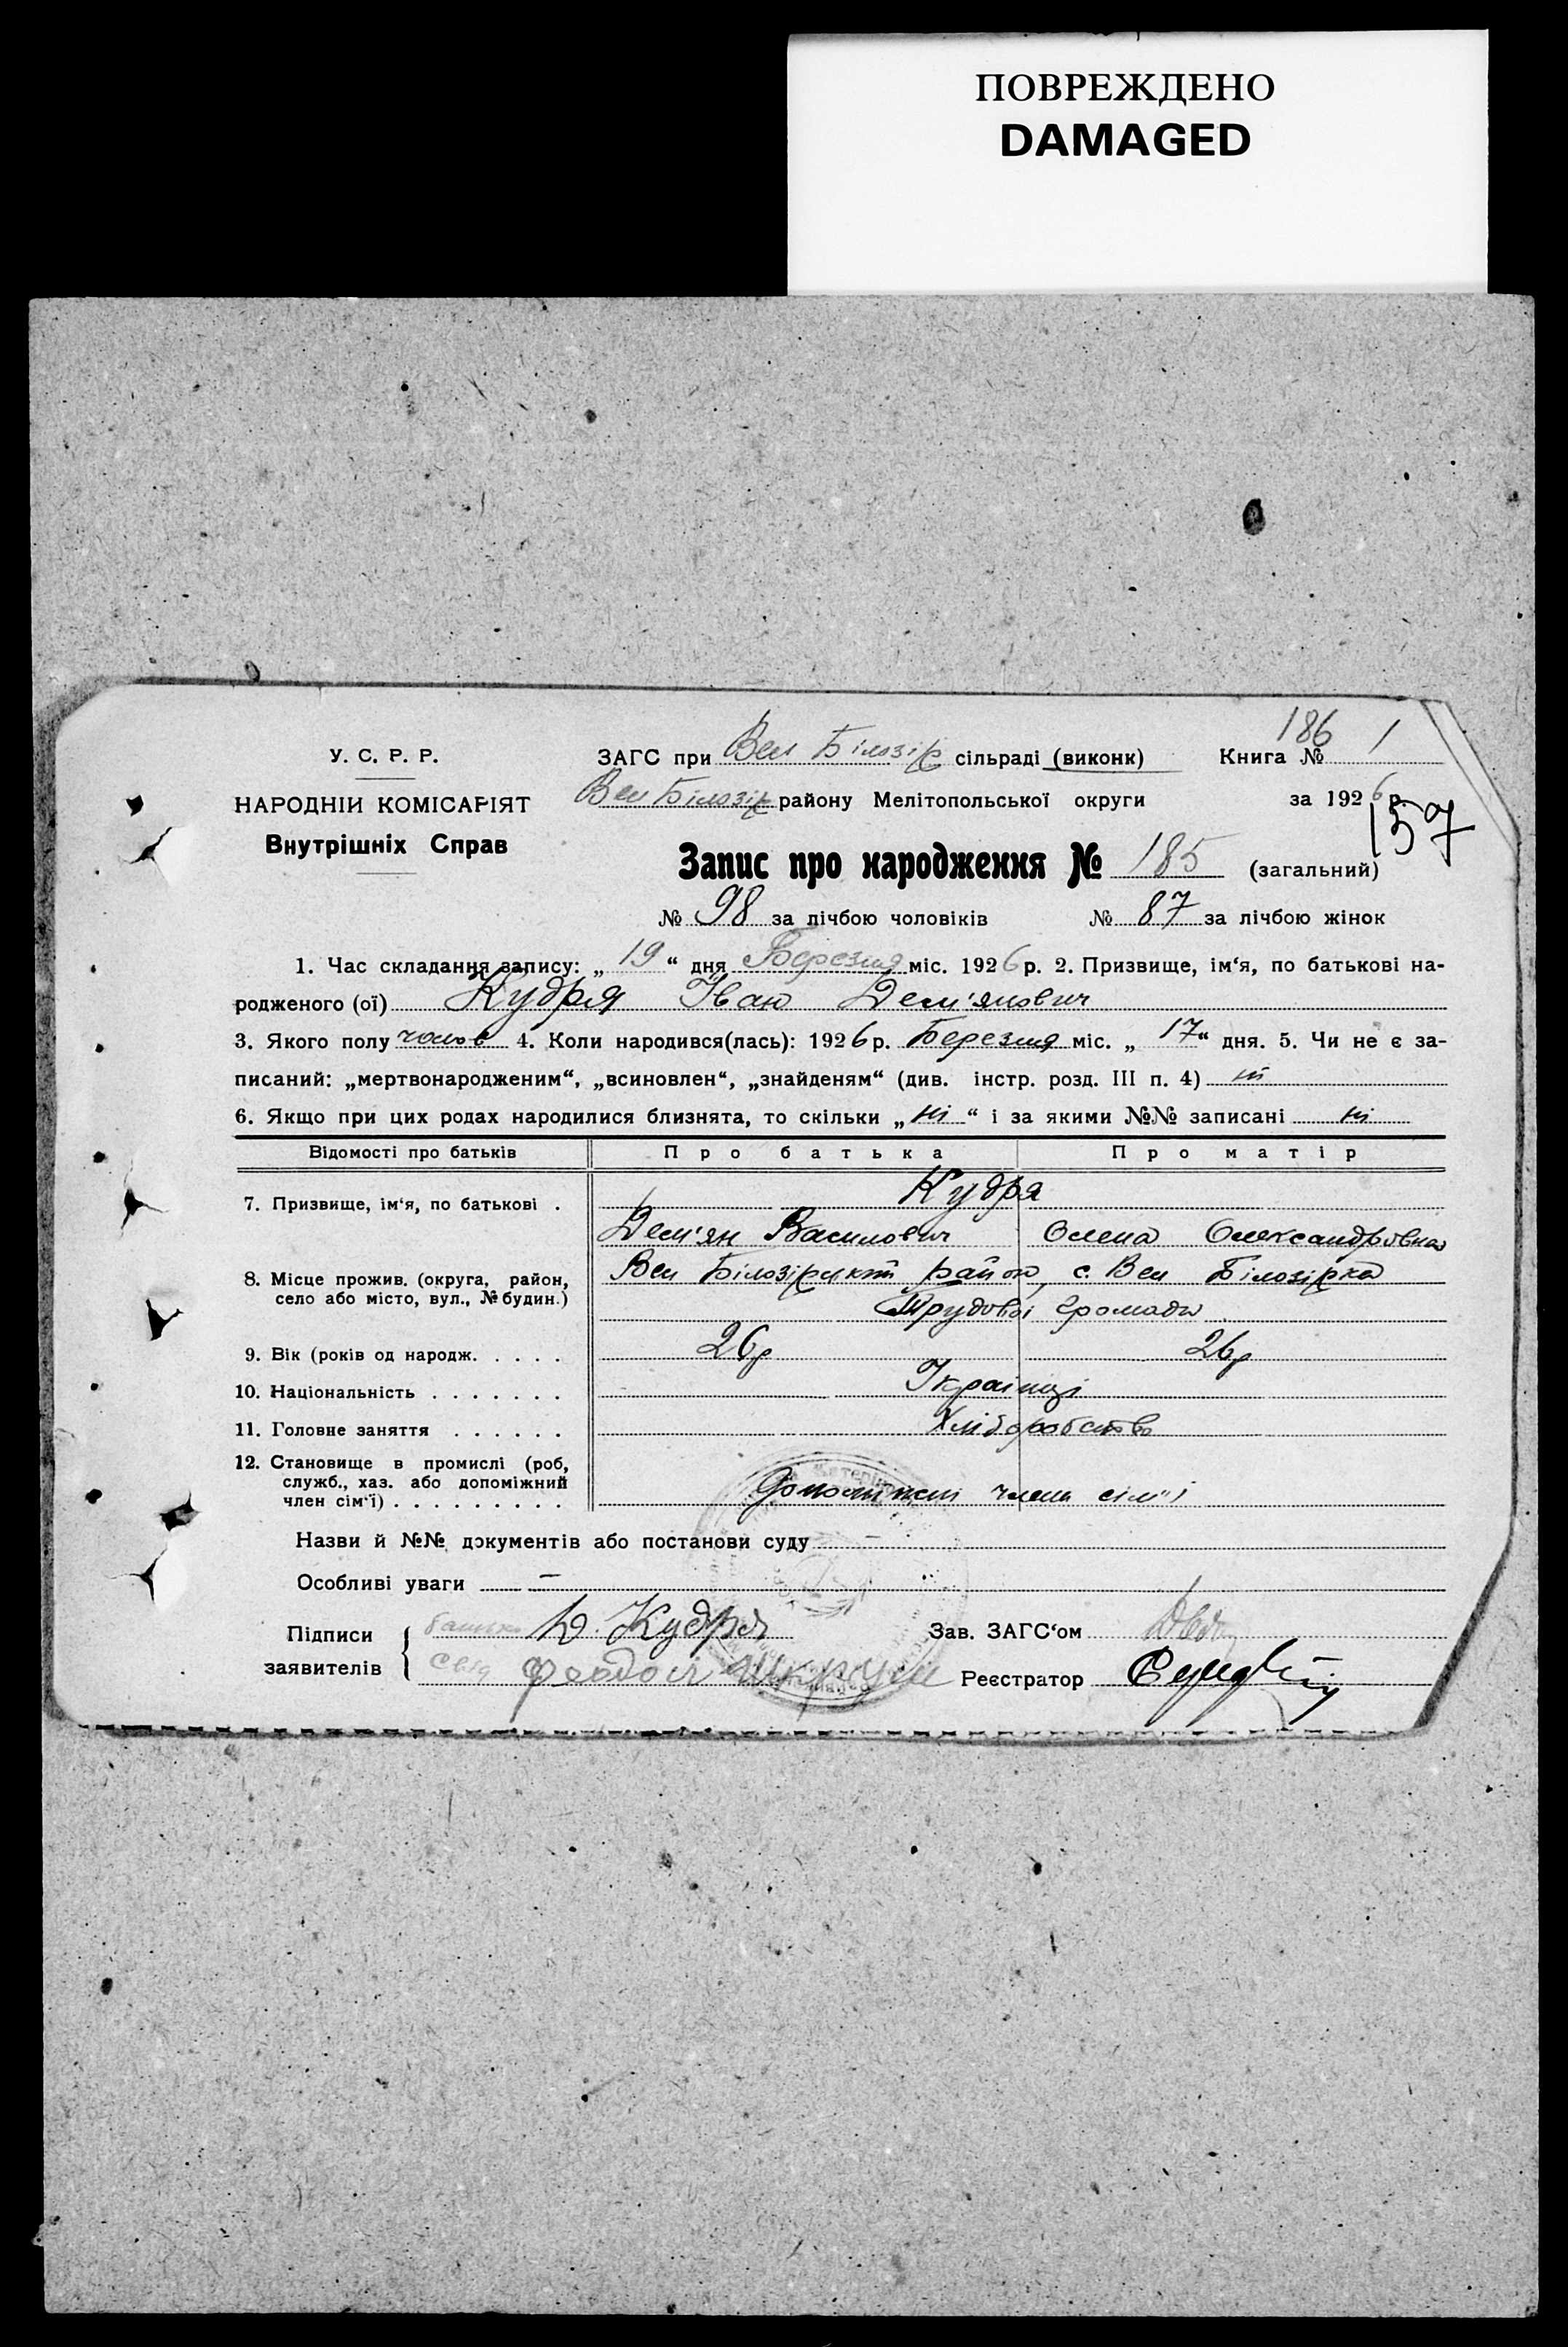 ПОВРЕЖДЕНО
DAMAGED
186 1
У. С. Р. Р. ЗАГС при Вел Білозір сільраді (виконк) Книга №
НАРОДНІЙ КОМІСАРІЯТ Вел Білозір району Мелітопольської округи за 1926 р.
157
Внутрішніх Справ
Запис про народження № 185 (загальний)
№ 98 за лічбою чоловіків № 87 за лічбою жінок
1. Час складання запису: „19“ дня Березня міс. 1926 р. 2. Призвище, ім‘я, по батькові на-
родженого (ої) Кудря Іван Дем'янович
3. Якого полу чолов 4. Коли народився(лась): 1926 р. Березня міс. „17“ дня. 5. Чи не є за-
писаний: „мертвонародженим“, „всиновлен“, „знайденям“ (див. інстр. розд. III п. 4) ні
6. Якщо при цих родах народилися близнята, то скільки „ні“ і за якими №№ записані ні
Відомості про батьків Про батька Про матір
7. Призвище, ім‘я, по батькові . Кудря
Дем'ян Василович Олена Олександровна
8. Місце прожив. (округа, район, Вел Білозірський район, с. Вел Білозірка
село або місто, вул., № будин.) Трудової громади
9. Вік (років од народж. . . . . 26р 26р
10. Національність . . . . . . . Українці
11. Головне заняття . . . . . . Хліборобство
12. Становище в промислі (роб,
служб., хаз. або допоміжний
член сім‘ї) . . . . . . . . . . Допоміжні члени сім'ї
Назви й №№ документів або постанови суду —
Особливі уваги —
Підписи батько Д. Кудря Зав. ЗАГС‘ом
заявителів свід Феодосій Реєстратор